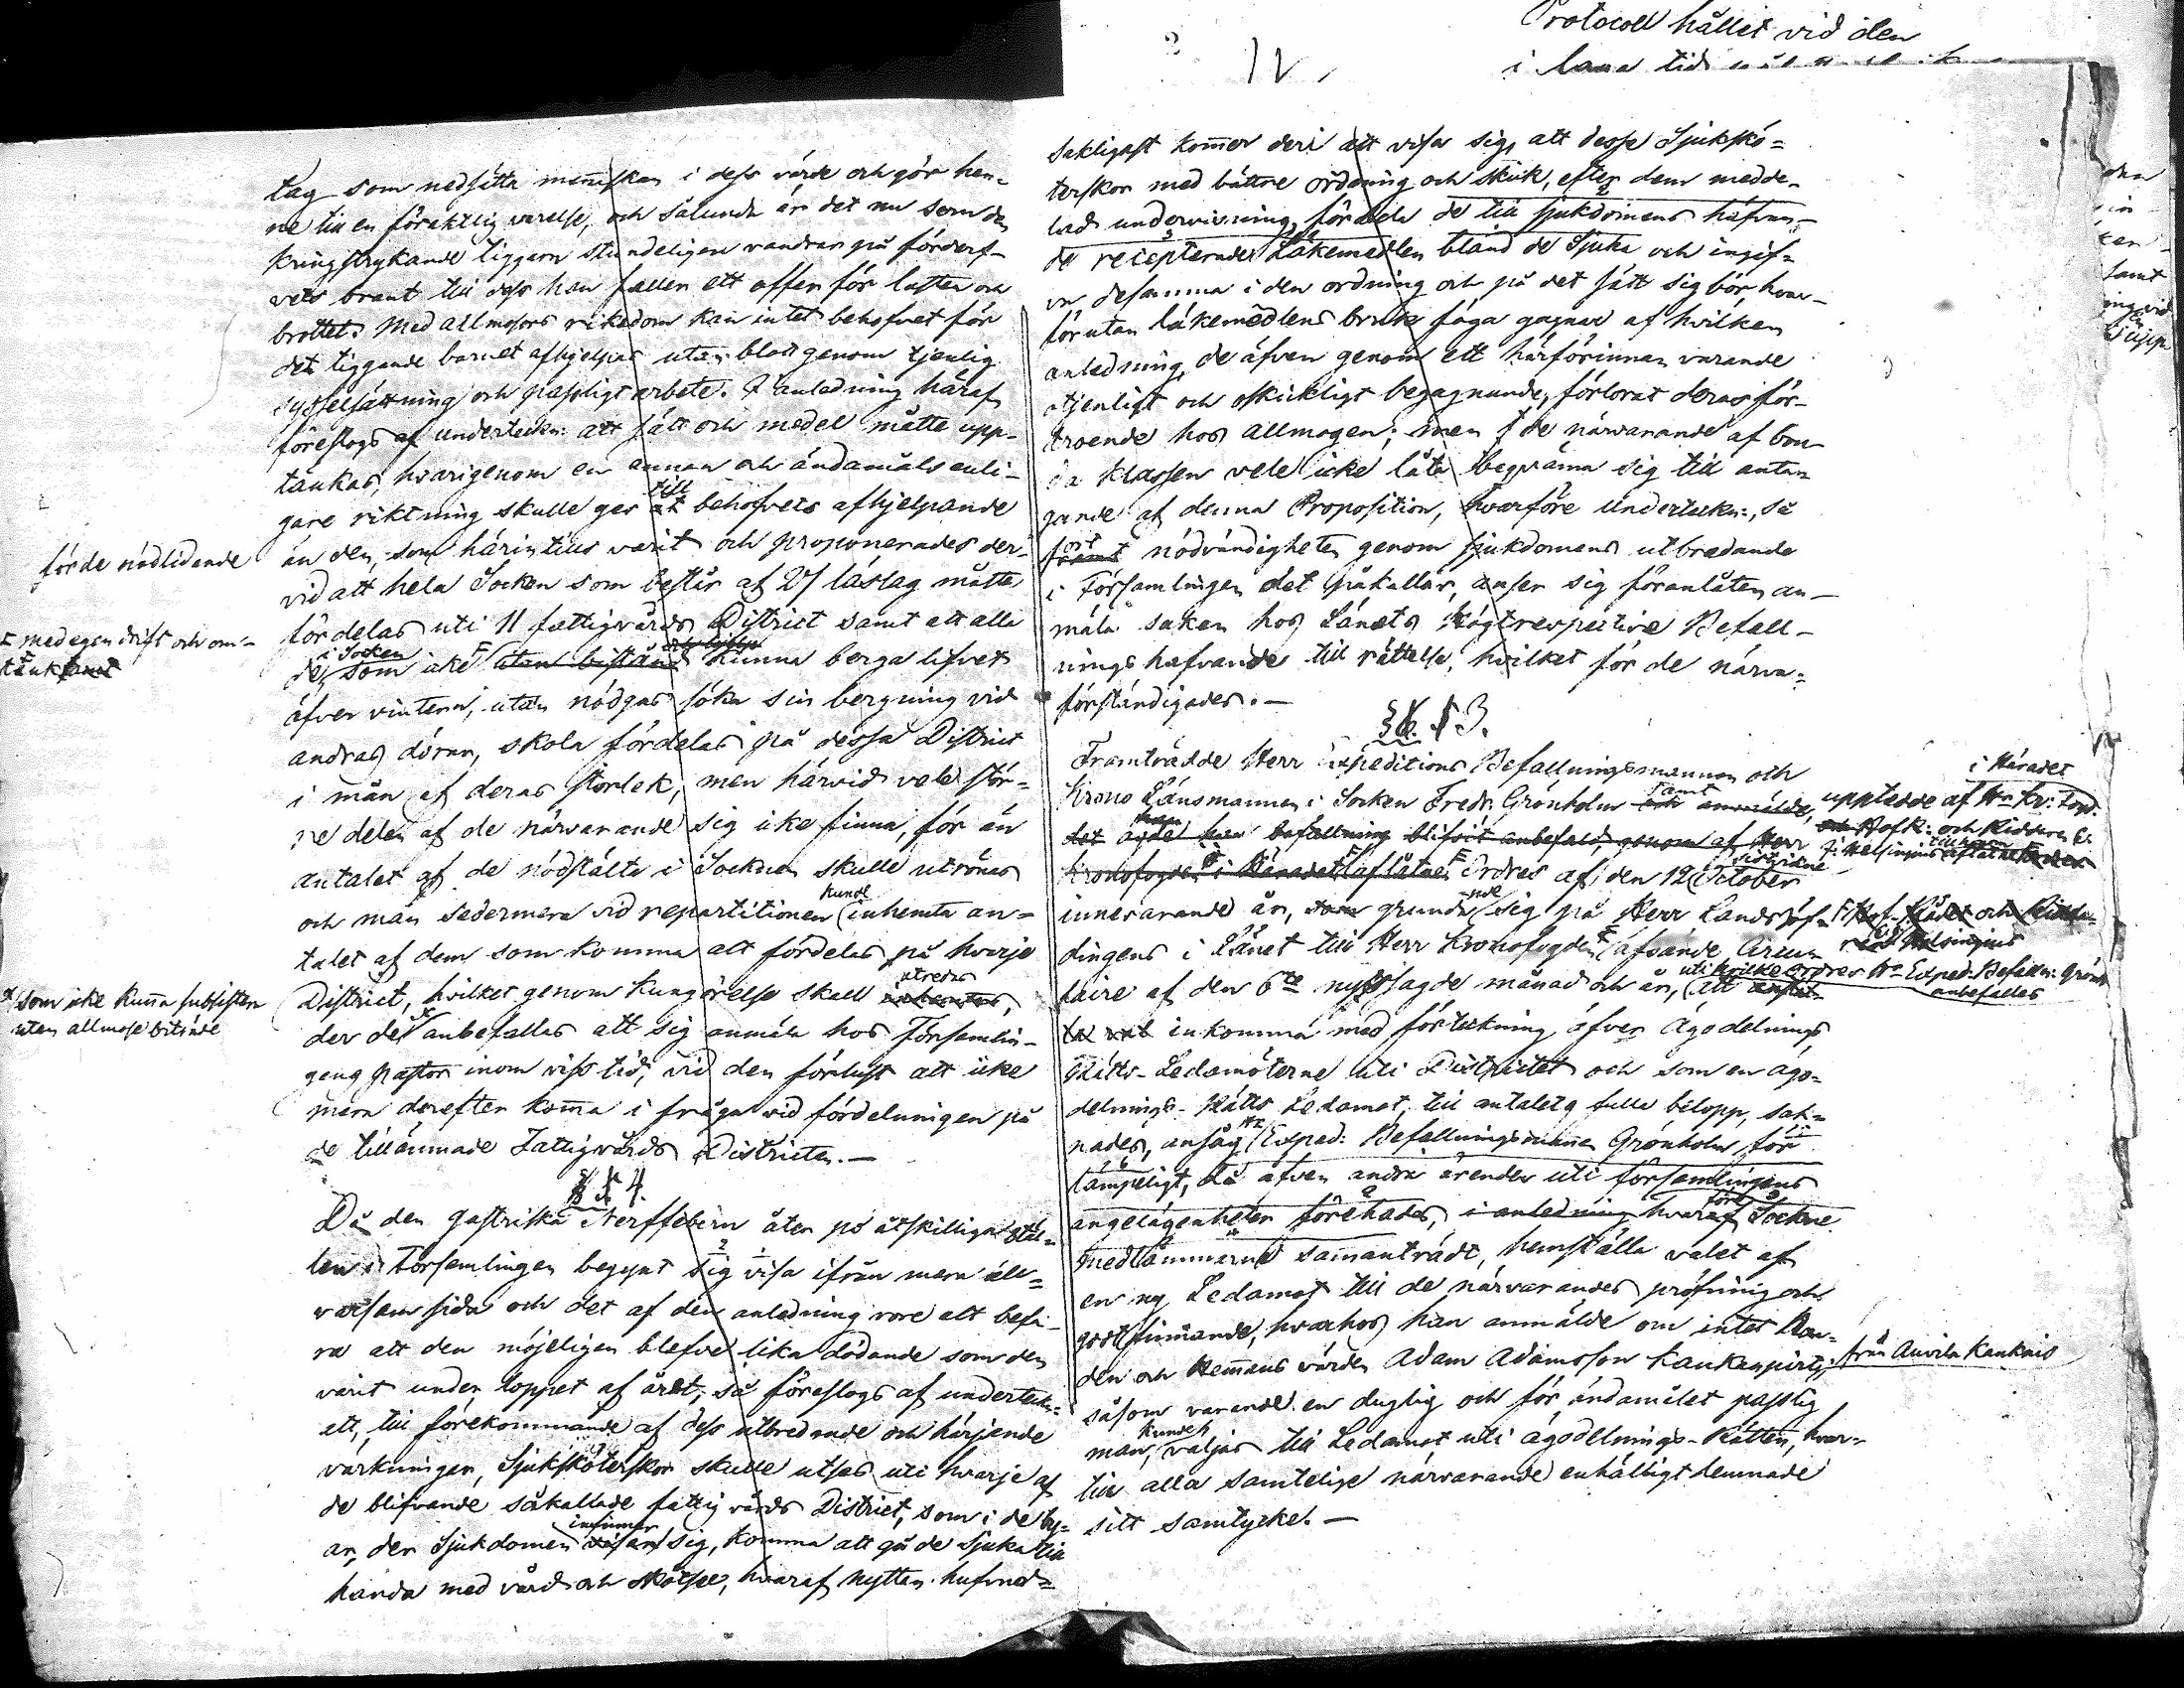 tag som nedsätta menniskan i dess värde och gör hen-
ne till en föraktlig varelse, och sålunda är det nu som den
kringstrykande tiggaren stundeligen vandrar på förderf-
vets brant till dess han faller ett offer för lasten och
brottet. Med allmosors rikedom kan intet behofvet för
det tiggande barnet afhjelpas utan blott genom tjenlig
sysselsättning och passligt arbete. I anledning häraf
föreslogs af underteckn: att sätt och medel måtte upp-
tänkas, hvarigenom en annan och ändamåls enli-
till
gare riktning skulle ges åt behofvets afhjelpande
för de nödlidande
än den, som härintills varit och proponerades der-
vid att hela Socken som består af 21 läslag måtte
fördelas uti 11 fattigvårds District samt att alla
med egen drift och om-
tänksamt
i Socken
de, som icke utan bistånd kunna berga lifvet
öfver vintern, utan nödgas söka sin bergning vid
andras dörar, skola fördelas på dessa District
i mån af deras storlek, men härvid vele stör-
re delen af de närvarande sig icke finna, för än
antalet af de nödstälte i Socknen skulle utrönas
kunde
och man sedermera vid repartitionen inhemta an-
talet af dem som komma att fördelas på hvarje
utredas
District, hvilket genom kungörelse skall inhemtas,
som icke kunna subsistera
utan allmose biträde
der de anbefallas att sig anmäla hos Församlin-
gens Pastor inom viss tid, vid den förlust att icke
mera derefter komma i fråga vid fördelningen på
de tillämnade Fattigvårds Districten.—
§ 4.
Då den gastriska Nerffebern åter på åtskilliga stäl-
len i Församlingen begynt sig visa ifrån mera all-
varsam sida och det af den anledning vore att befa-
ra att den möjeligen blefve lika dödande som den
varit under loppet af året, så föreslogs af underteckn:
att, till förekommande af dess utbredande och härjande
värkningar, Sjuksköterskor skulle utses uti hvarje af
de blifvande såkallade fattigvårds District, som i de by-
infinner
ar, der Sjukdomen visar sig, komma att gå de sjuka till
handa med vård och skötsel, hvaraf nyttan hufvud-
Protocoll hållet vid den
IV.
sakligast kommer deri att visa sig, att desse Sjukskö-
terskor med bättre ordning och skick, efter dem medde-
lad undervisning, fördela de till sjukdomens häfvan-
de recepterade Läkemedlen bland de Sjuka och ingif-
va desamma i den ordning och på det sätt sig bör, hvar-
förutan läkemedlens bruk föga gagnar af hvilken
anledning, de äfven genom ett härförinnan varande
otjenligt och oskickligt begagnande, förlorat deras för-
troende hos allmogen; men de närvarande af bon-
da klassen vele icke låta beqväma sig till anta-
gande af denna Proposition, hvarföre Underteckn:, så
fort
framt nödvändigheten genom sjukdomens utbredande
i Församlingen det påkallar, anser sig föranlåten an-
mäla saken hos Länets Högtrespective Befall-
ningshafvande till rättelse, hvilket för de närva-
förständigades.—
§ 3.
Framträdde Herr Expeditions Befallningsmannen och
i Häradet
samt
Krono Länsmannen i Socken Fredr. Grönholm och anmälde,
upptedde af Hr Kr: Fogd:
han
det ägde han befallning blifvit anbefald, genom af Herr
och HofR: och Riddaren
Helsingius
Kronofogden i Häradet aflåtne Ordres af den 12 October
innevarande år, som grunda sig på Herr Landshöf-
Hof-Rådet och Ridda-
Helsingius
dingens i Länet till Herr Kronofogden afsände Circu-
uti hvilke ordres Hr Exped. Befalln: Grönh
anbefalles
laire af den 6te nyssagde månad och år, att anstäl-
la val inkomma med förteckning öfver Ägodelnings
Rätts-Ledamöterne uti Districtet och som en ägo-
delnings-Rätts Ledamot, till antalets fulla belopp, sak-
nades, ansåg Hr Exped: Befallningsmannen Grönholm för
lämpeligt, då äfven andra ärender uti församlingens
angelägenheter förehades, i anledning hvaraf Sockne
medlämmarne sammanträdt, hemställa valet af
en ny Ledamot till de närvarandes pröfning och
godtfinnande, hvarhos han anmälde om intet Bon-
den och Hemmans värden Adam Adamsson Kaukanpirtj,
från Auvila Kankais
såsom varande en duglig och för ändamålet passlig
kunde
man, väljas till Ledamot uti ägodelnings-Rätten, hvar-
till alla samtelige närvarande enhälligt lemnade
sitt samtycke.—